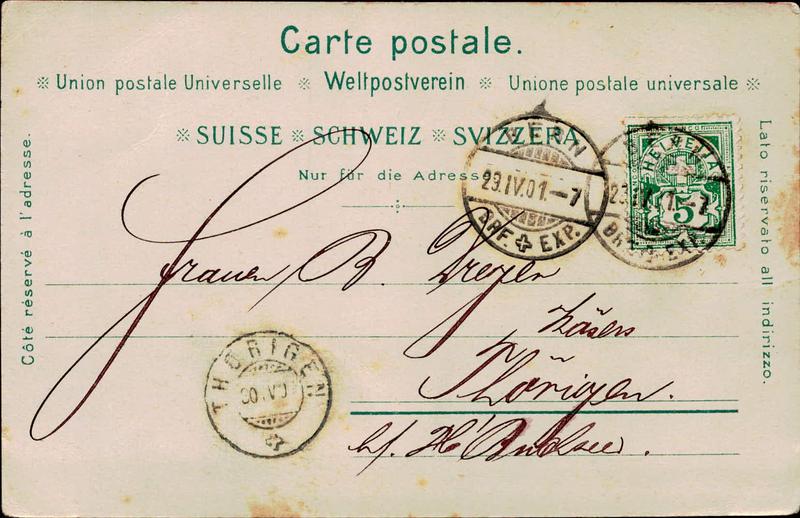 Carte postale.
※ Union postale Universelle ※ Weltpostverein ※ Unione postale universale ※
※ SUISSE ※ SCHWEIZ ※ SVIZZERA
Nur für die Adresse
Côté réservé à l'adresse.
Lato riservato all indirizzo.
BERN
29.IV.01.–7
BRF. EXP.
HELVETIA
5
29.IV.01.–7
BRF. EXP.
Frauen B.
Käsers
Thörigen.
b/
THÖRIGEN
30.IV.0